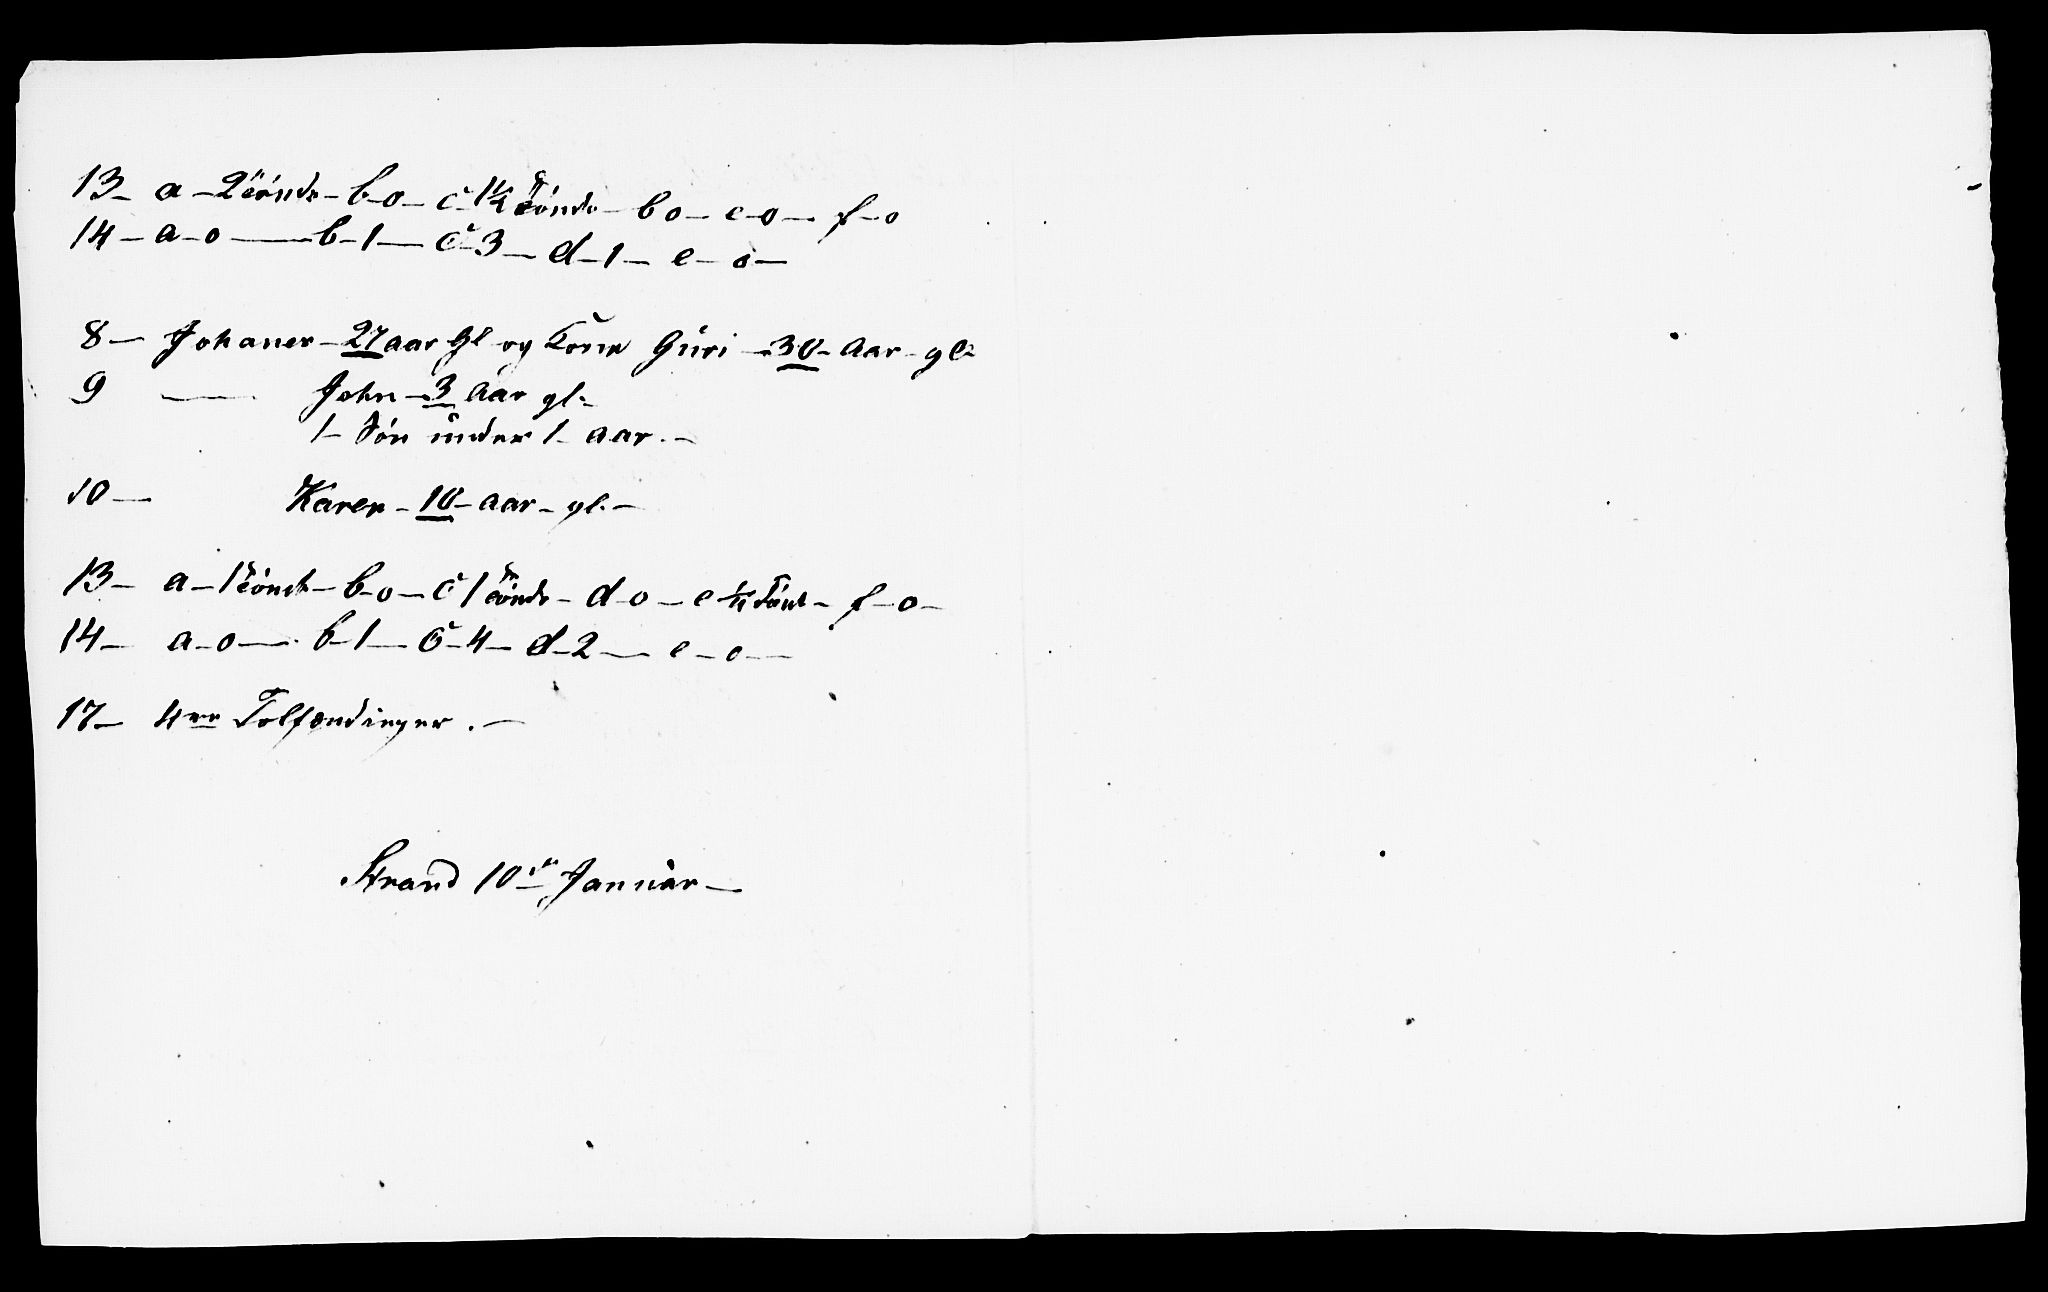 13- a-2 Tønde-b-o-c-1¼ Tønde-b o-e-o-f-o
14-a-o-b-1-c-3-d-1-e-o-
8- Johanes-27 aar Gl og Kone Guri-30-Aar-gl.
9 - John-3 Aar gl.-
1-Søn under 1-aar.-
10- Karen-10-aar-gl.-
13- a-1 Tønde-b-o-c 1 Tønde-d-o-e ¼ Tønde-f-o-
14- a-o-b-1-c-4-d-2-e-o-
17- 4re Folfændinger.-
Strand 10de Januar-